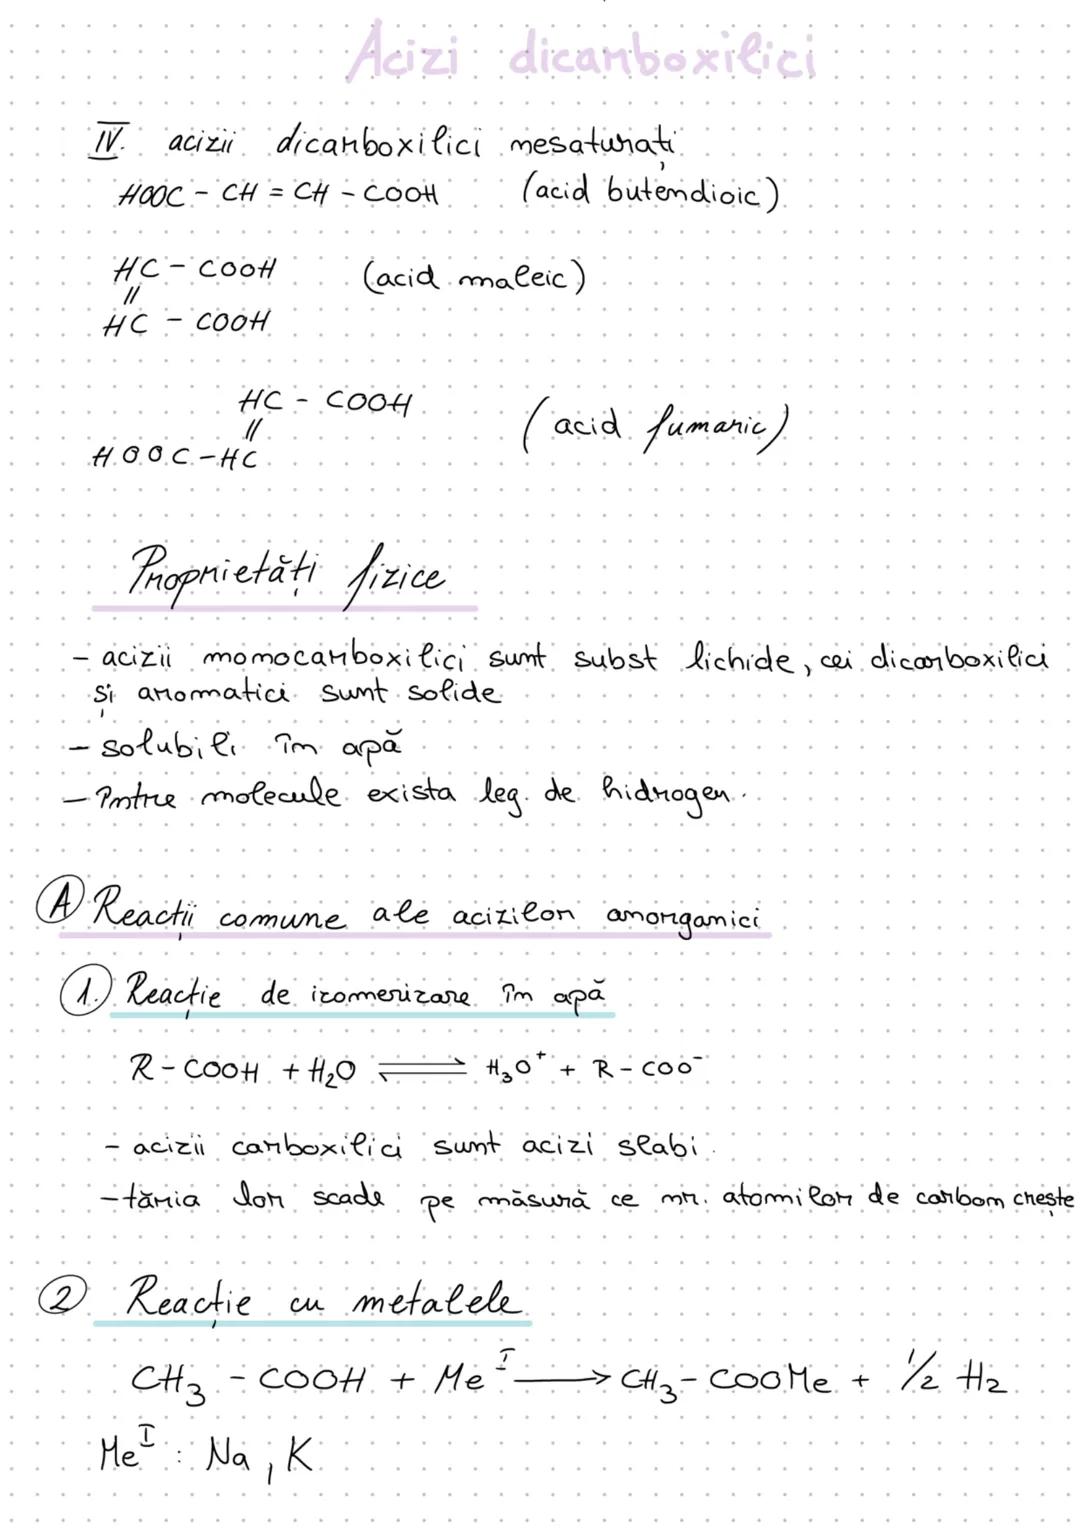 Acizi dicarboxilici
IV. acizii dicarboxilici nesaturați
HOOC - CH = CH - COOH (acid butendioic)
HC - COOH (acid maleic)
||
HC - COOH
HC - COOH (acid fumaric)
||
HOOC - HC
Proprietăți fizice
- acizii monocarboxilici sunt subst lichide, cei dicarboxilici
și aromatici sunt solide
- solubili în apă
- între molecule exista leg. de hidrogen.
A Reacții comune ale acizilor anorganici
1. Reacție de izomerizare în apă
R - COOH + H₂O ⇌ H₃O⁺ + R - COO⁻
- acizii carboxilici sunt acizi slabi.
- tăria lor scade pe măsură ce nr. atomilor de carbon crește
2 Reacție cu metalele
CH₃ - COOH + Meᴵ → CH₃ - COOMe + 1/2 H₂
Meᴵ : Na, K